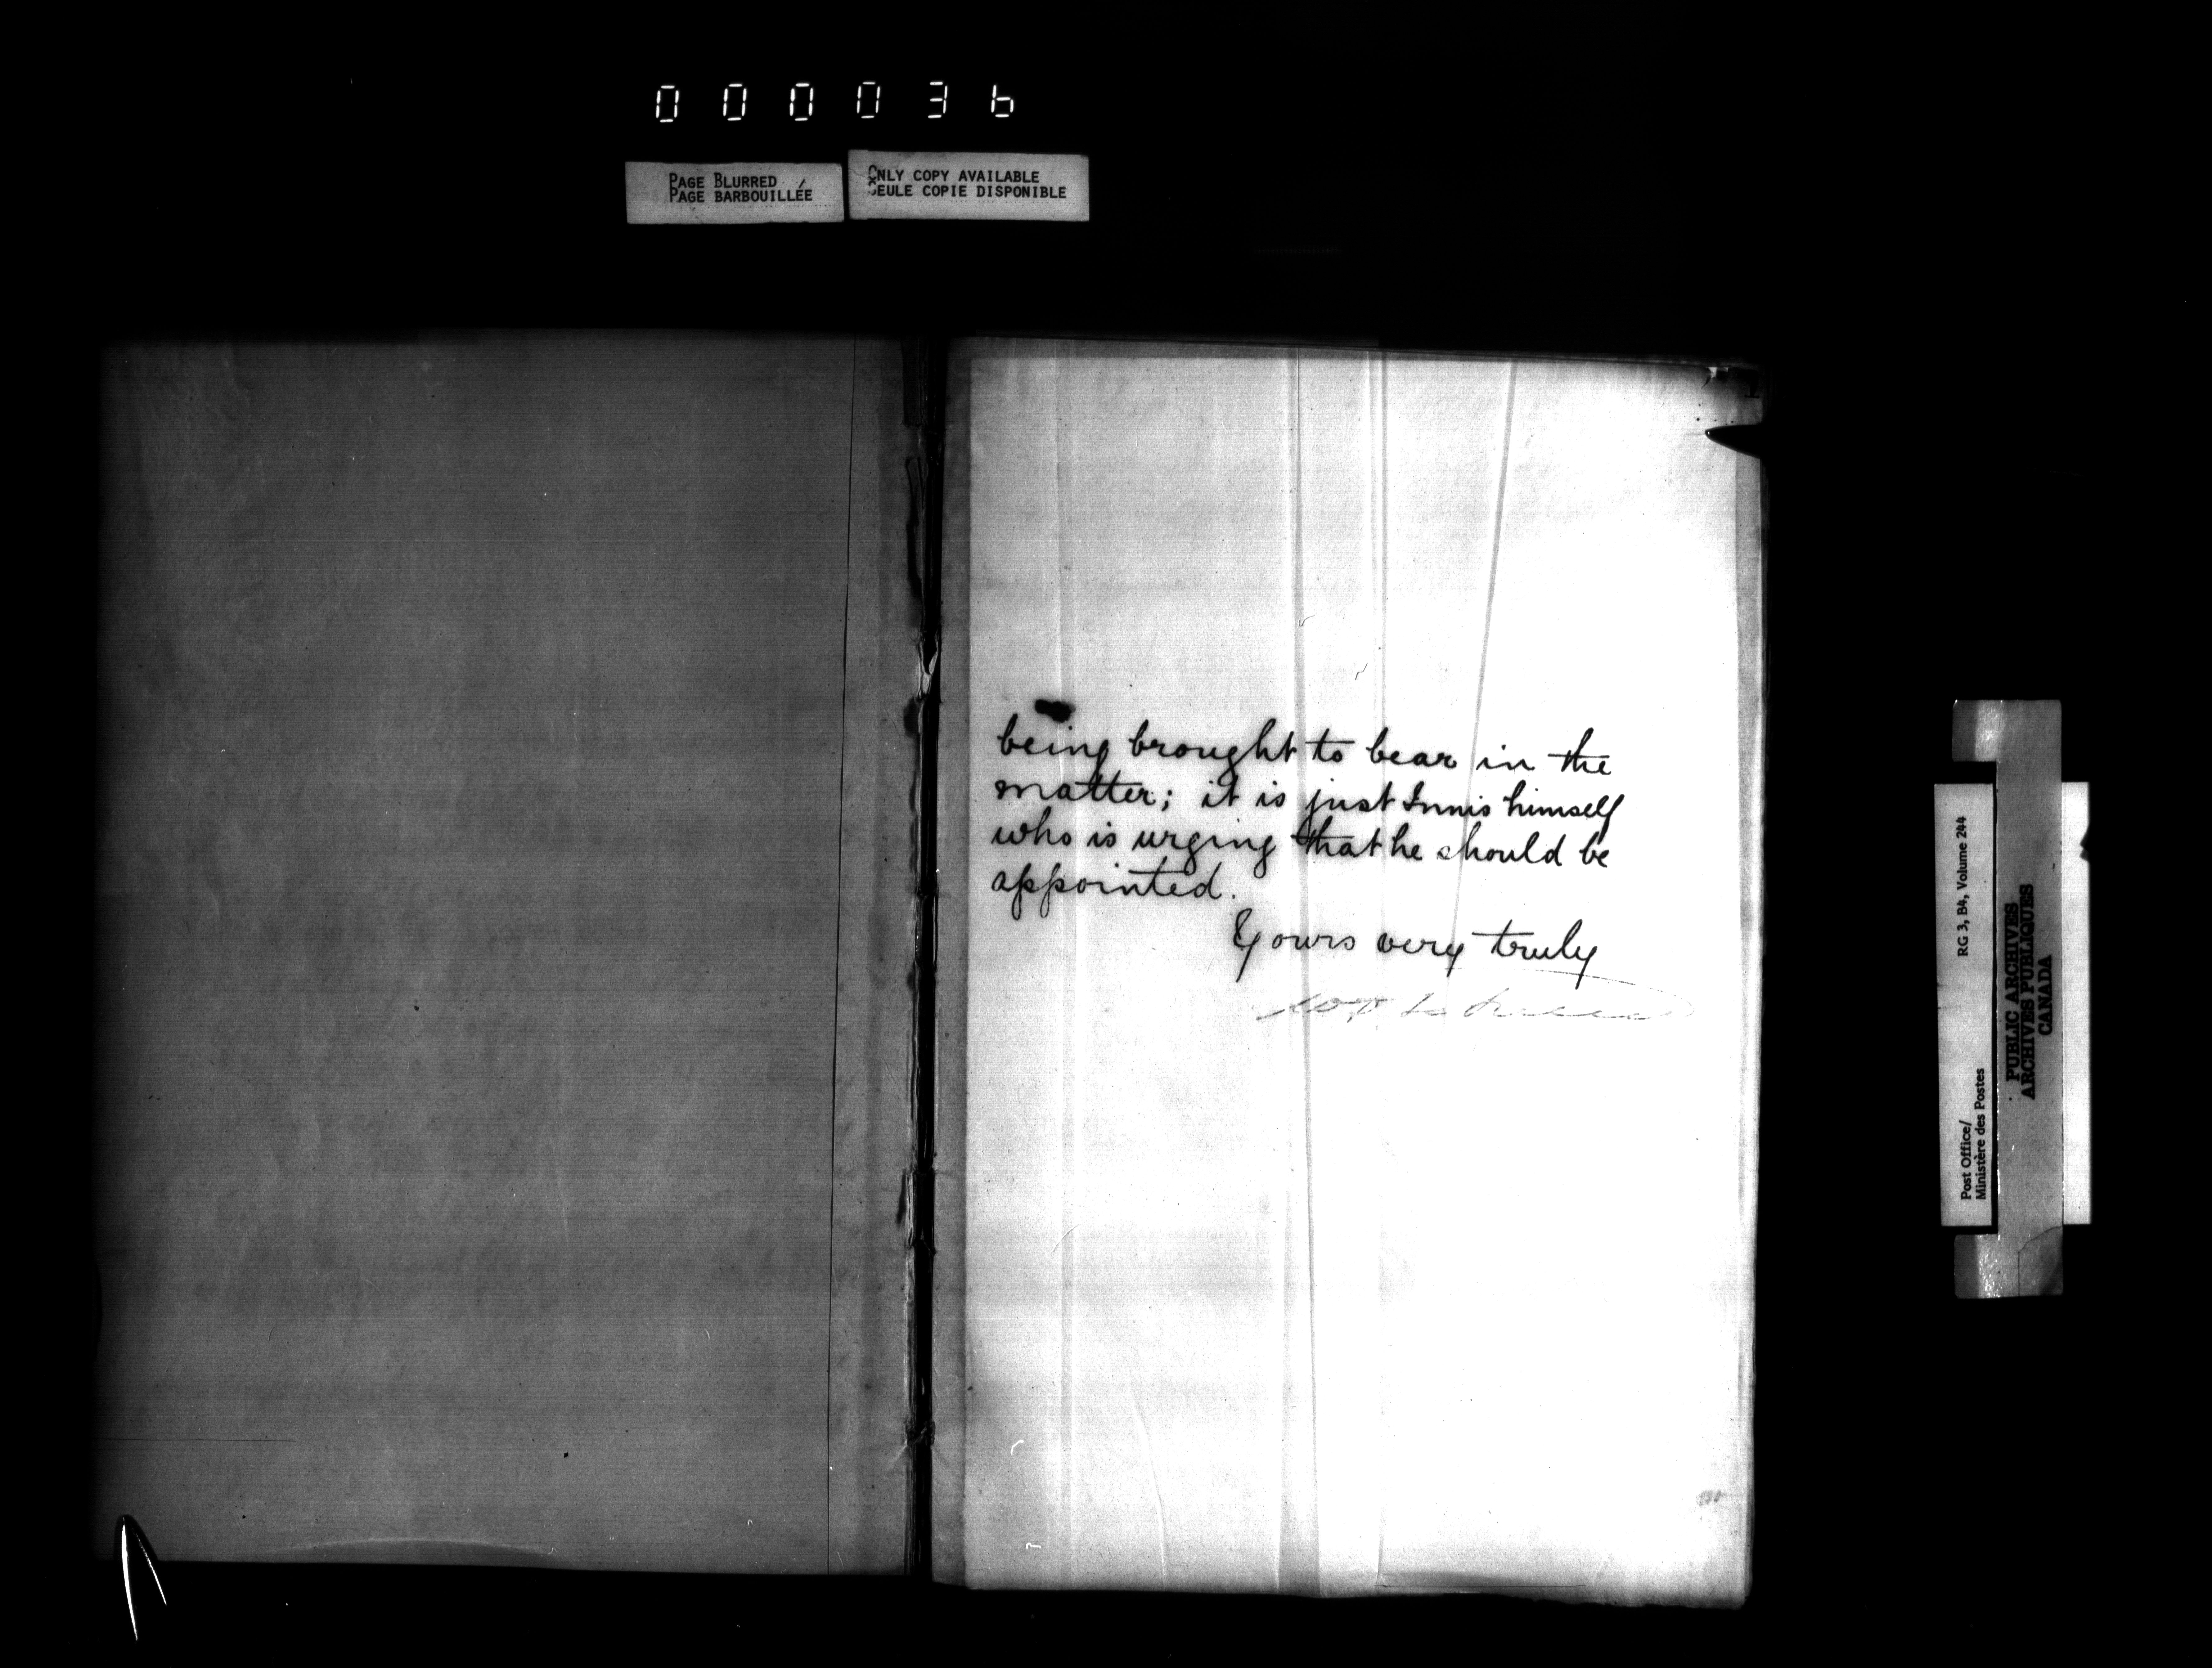 000036
PAGE BLURRED
PAGE BARBOUILLÉE
ONLY COPY AVAILABLE
SEULE COPIE DISPONIBLE
being brought to bear in the
matter; it is just Innis himself
who is urging that he should be
appointed.
Yours very truly
Post Office/
Ministère des Postes
RG 3, B4, Volume 244
PUBLIC ARCHIVES
ARCHIVES PUBLIQUES
CANADA